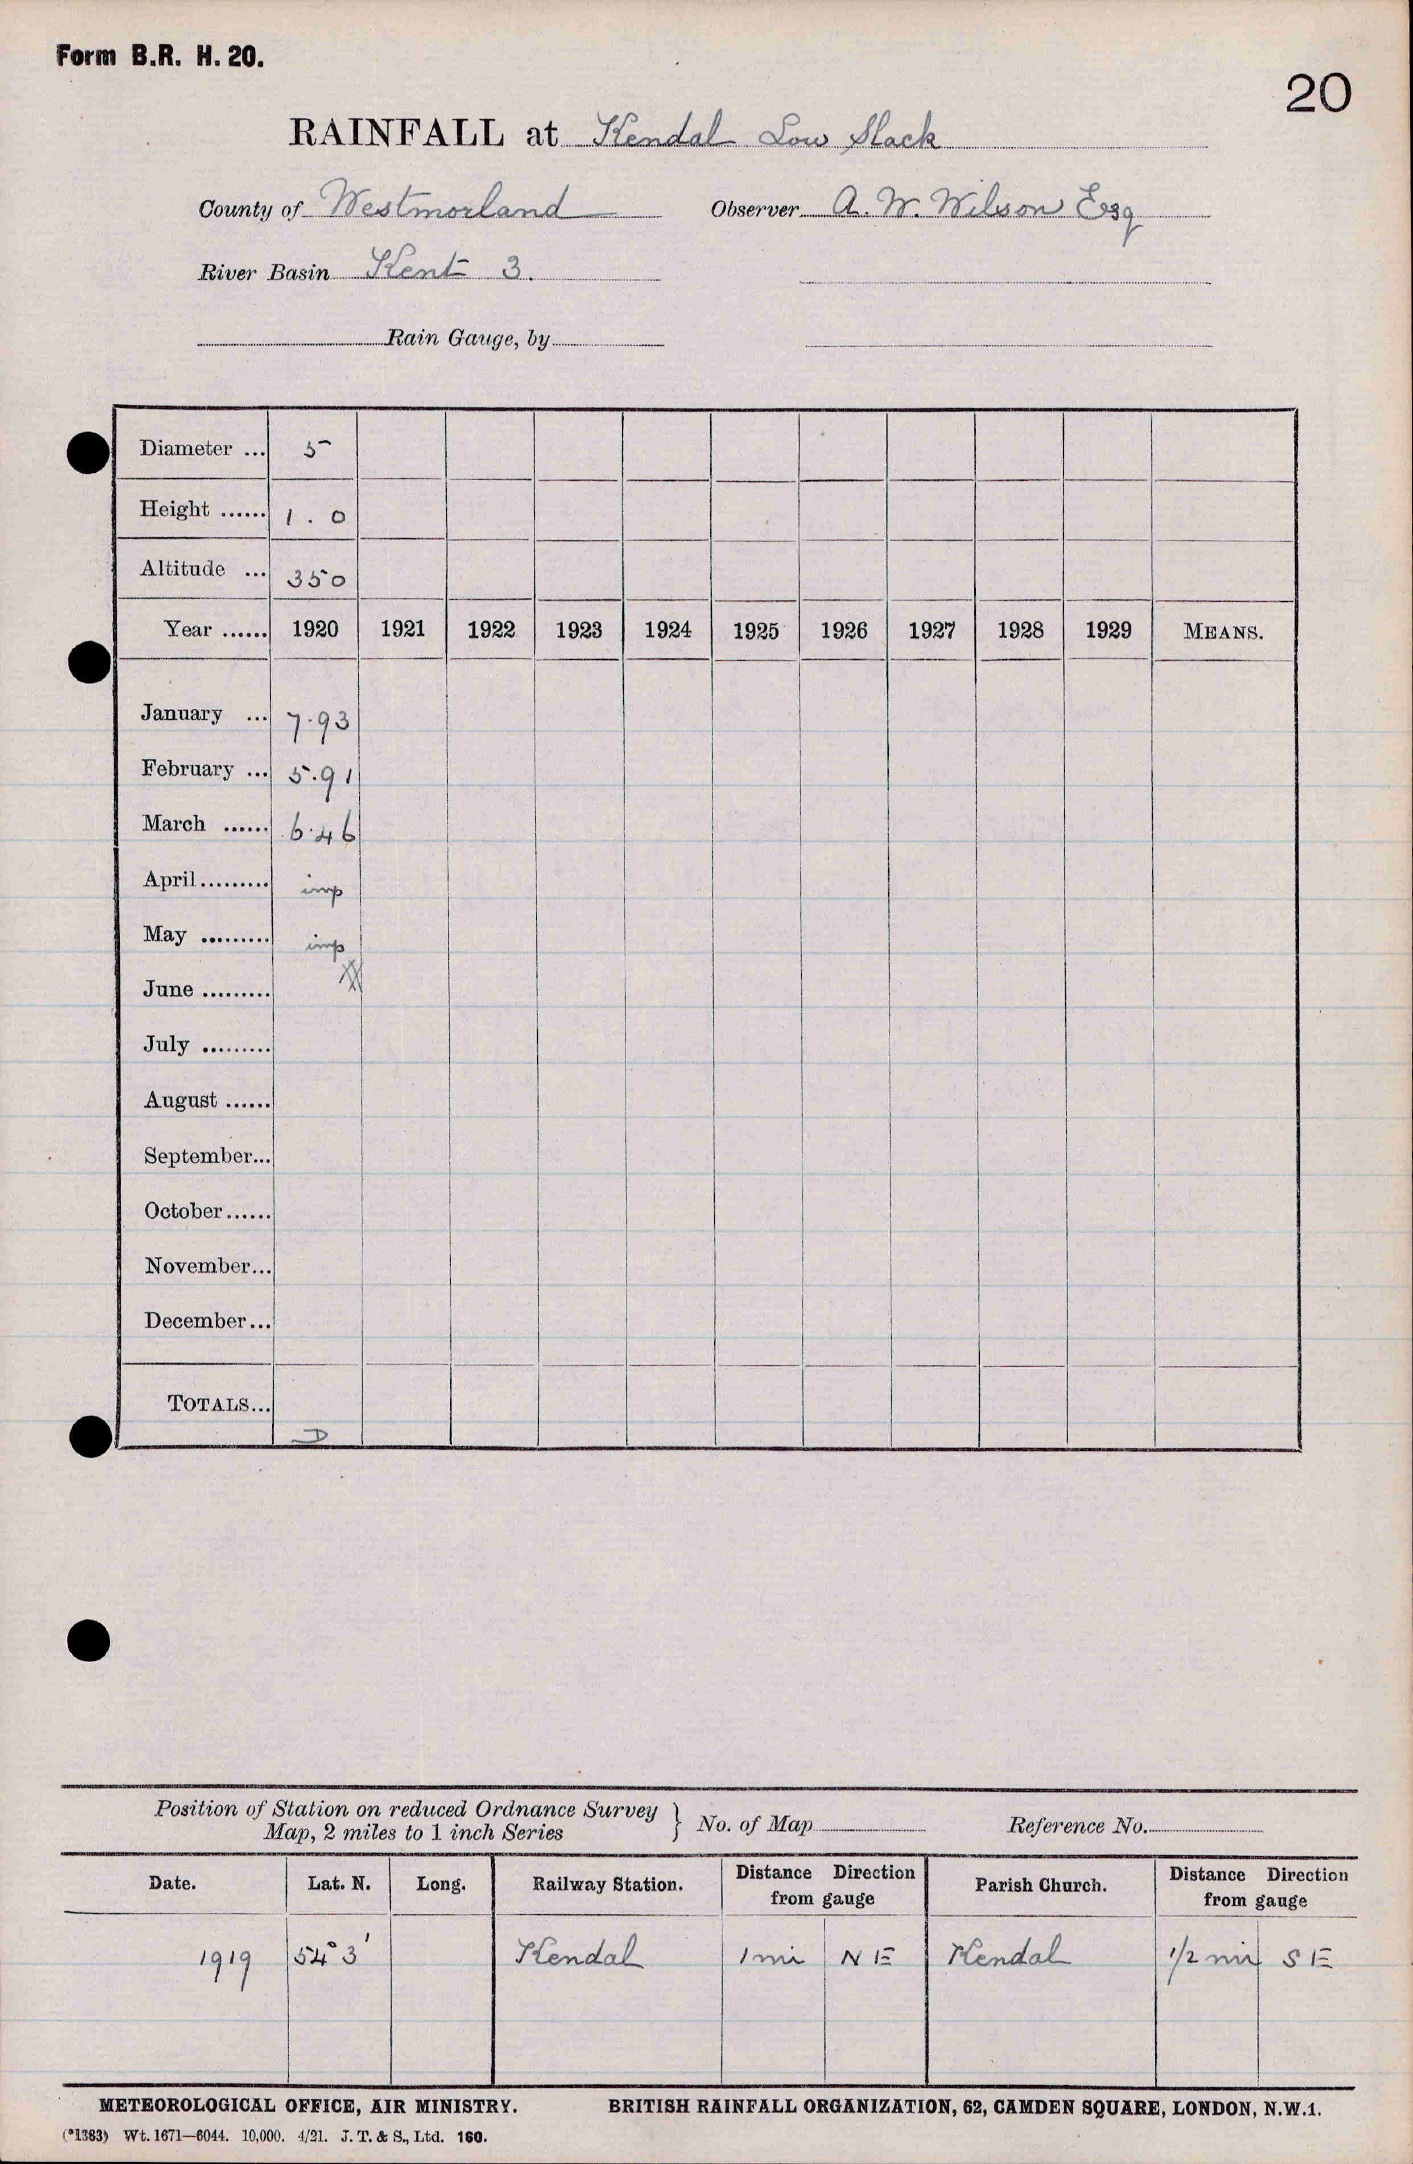 Form B.R. H. 20.
20
RAINFALL at Kendal Low Slack
County of Westmorland Observer A. W. Wilson Esq
River Basin Kent 3.
Rain Gauge, by
Diameter ... 5
Height ...... 1 . 0
Altitude ... 350
Year ...... 1920 1921 1922 1923 1924 1925 1926 1927 1928 1929 MEANS.
January ... 7.93
February ... 5.91
March ...... 6.46
April......... imp
May ......... imp
June .........
July .........
August ......
September...
October......
November...
December...
TOTALS...
D
Position of Station on reduced Ordnance Survey
Map, 2 miles to 1 inch Series } No. of Map Reference No.
Date. Lat. N. Long. Railway Station. Distance Direction from gauge Parish Church. Distance Direction from gauge
1919 54° 3' Kendal 1 mi N E Kendal 1/2 mi S E
METEOROLOGICAL OFFICE, AIR MINISTRY. BRITISH RAINFALL ORGANIZATION, 62, CAMDEN SQUARE, LONDON, N.W.1.
(*1383) Wt. 1671—6044. 10,000. 4/21. J. T. & S., Ltd. 160.